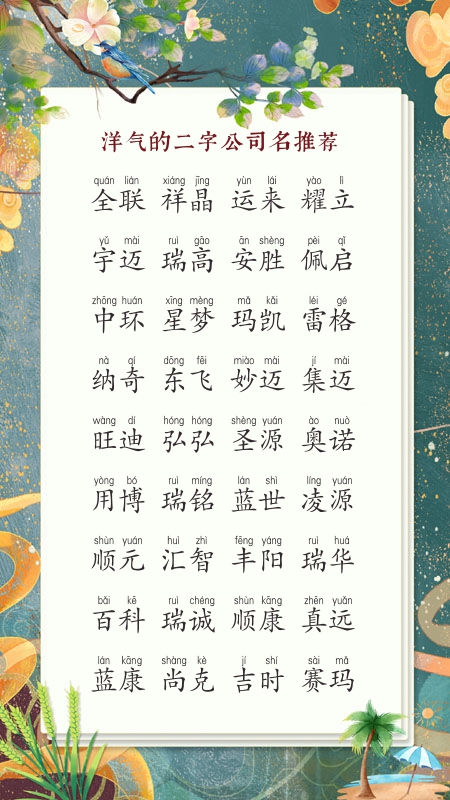 洋气的二字公司名推荐
quán lián xiáng jīng yùn lái yào lì
全联 祥晶 运来 耀立
yǔ mài ruì gāo ān shèng pèi qǐ
宇迈 瑞高 安胜 佩启
zhōng huán xīng mèng mǎ kǎi léi gé
中环 星梦 玛凯 雷格
nà qí dōng fēi miào mài jí mài
纳奇 东飞 妙迈 集迈
wàng dí hóng hóng shèng yuán ào nuò
旺迪 弘弘 圣源 奥诺
yòng bó ruì míng lán shì líng yuán
用博 瑞铭 蓝世 凌源
shùn yuán huì zhì fēng yáng ruì huá
顺元 汇智 丰阳 瑞华
bǎi kē ruì chéng shùn kāng zhēn yuǎn
百科 瑞诚 顺康 真远
lán kāng shàng kè jí shí sài mǎ
蓝康 尚克 吉时 赛玛